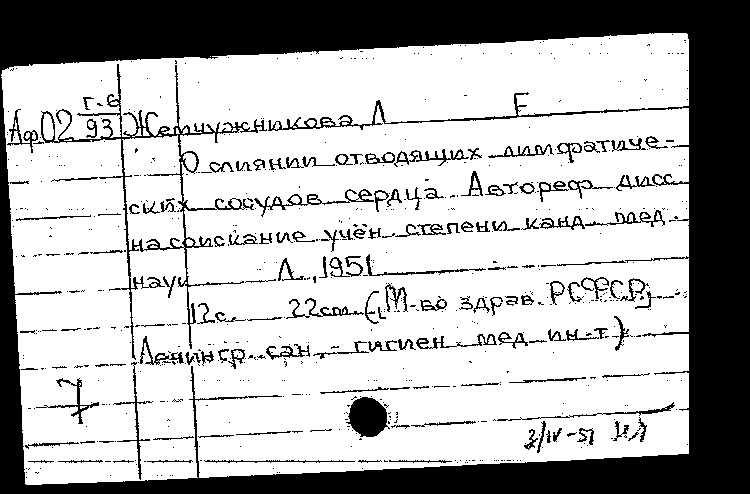 г. 6
Аф02 93 Жемчужникова, Л Е
О слиянии отводящих лимфатиче-
ских сосудов сердца Автореф дисс
на соискание учён. степени канд. мед.
наук Л., 1951
12с. 22см. (М-во здрав. РСФСР;
Ленингр. сан.-гигиен. мед ин-т)
7
3/IV-51